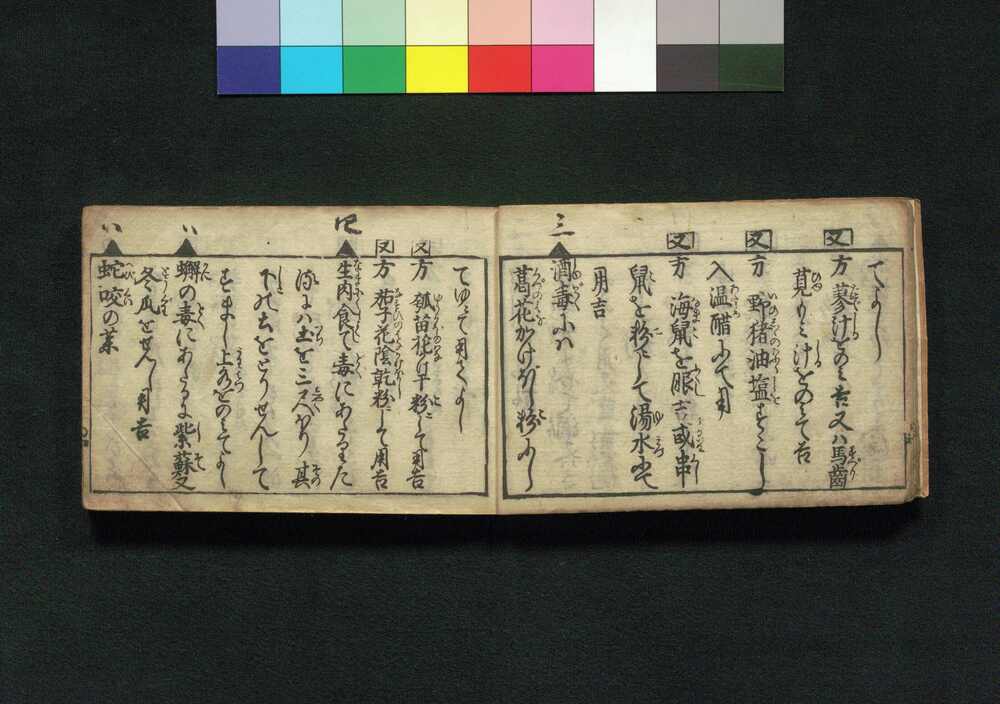 てよし
又方 蓼汁をのみ吉又ハ馬齒
莧のしぼり汁をのみて吉
又方 野猪油塩すこし
入温醋にて用
又方 海鼠を服吉或串
鼠を粉にして湯水にて
用吉
三 ▲酒毒にハ
葛花かげぼし粉にし
てゆにて用てよし
又方 瓠苗花付干粉にして用吉
又方 茄子花陰乾粉にして用吉
▲生肉食て毒にあたる
にハ土を三尺ほり其
下の土をとりせんして
すまし上水をのみてよし
い ▲蟹の毒にあたるに紫蘇又
冬瓜をせんし用吉
い ▲蛇咬の薬